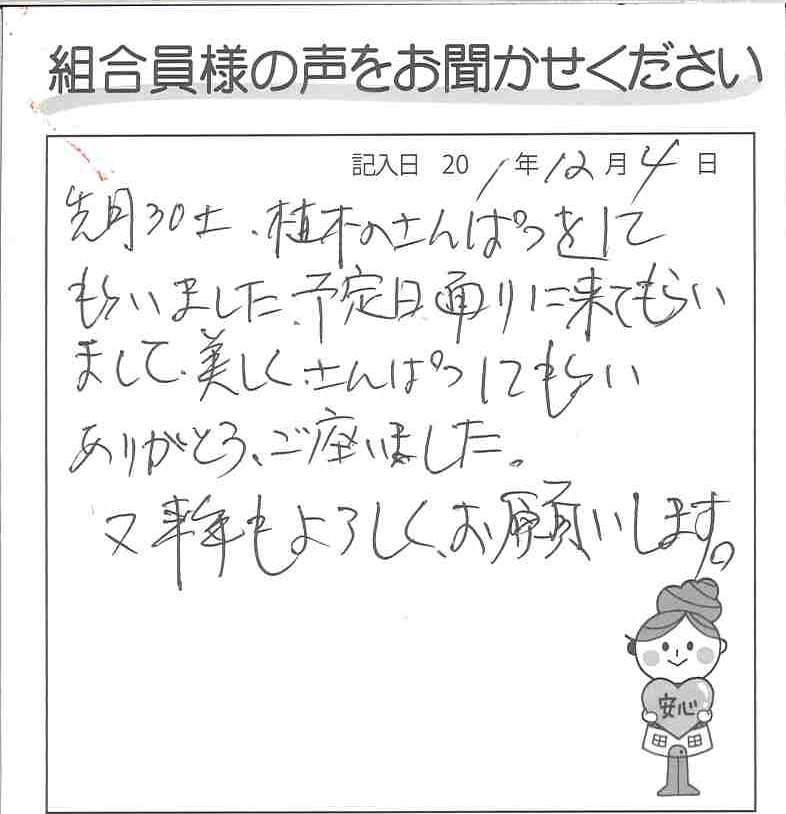 組合員様の声をお聞かせください
記入日 20 1年12月4日
先月30土、植木のさんぱつをして
もらいました、予定日通りに来てもらい
まして、美しく、さんぱつしてもらい
ありがとう、ご座いました。
又来年もよろしく、お願いします。
安心